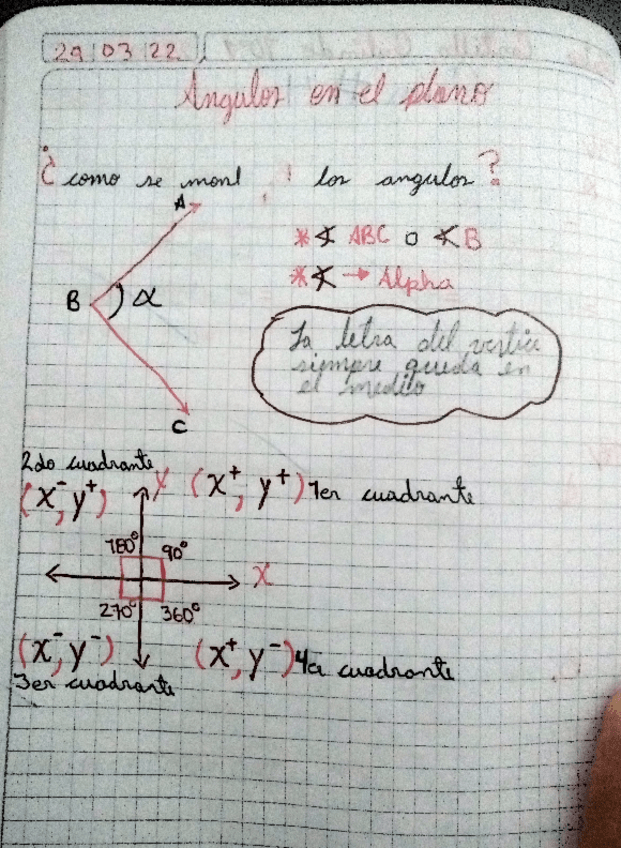 29/03/22
Angulos en el plano
¿como se los angulos?
A
* ∢ ABC o ∢B
B α
* ∢ → Alpha
La letra del vertice
siempre queda en
el medio
C
2do cuadrante
(x⁻, y⁺) Y (x⁺, y⁺) 1er cuadrante
180° 90°
X
270° 360°
(x⁻, y⁻) (x⁺, y⁻) 4a cuadrante
3er cuadrante